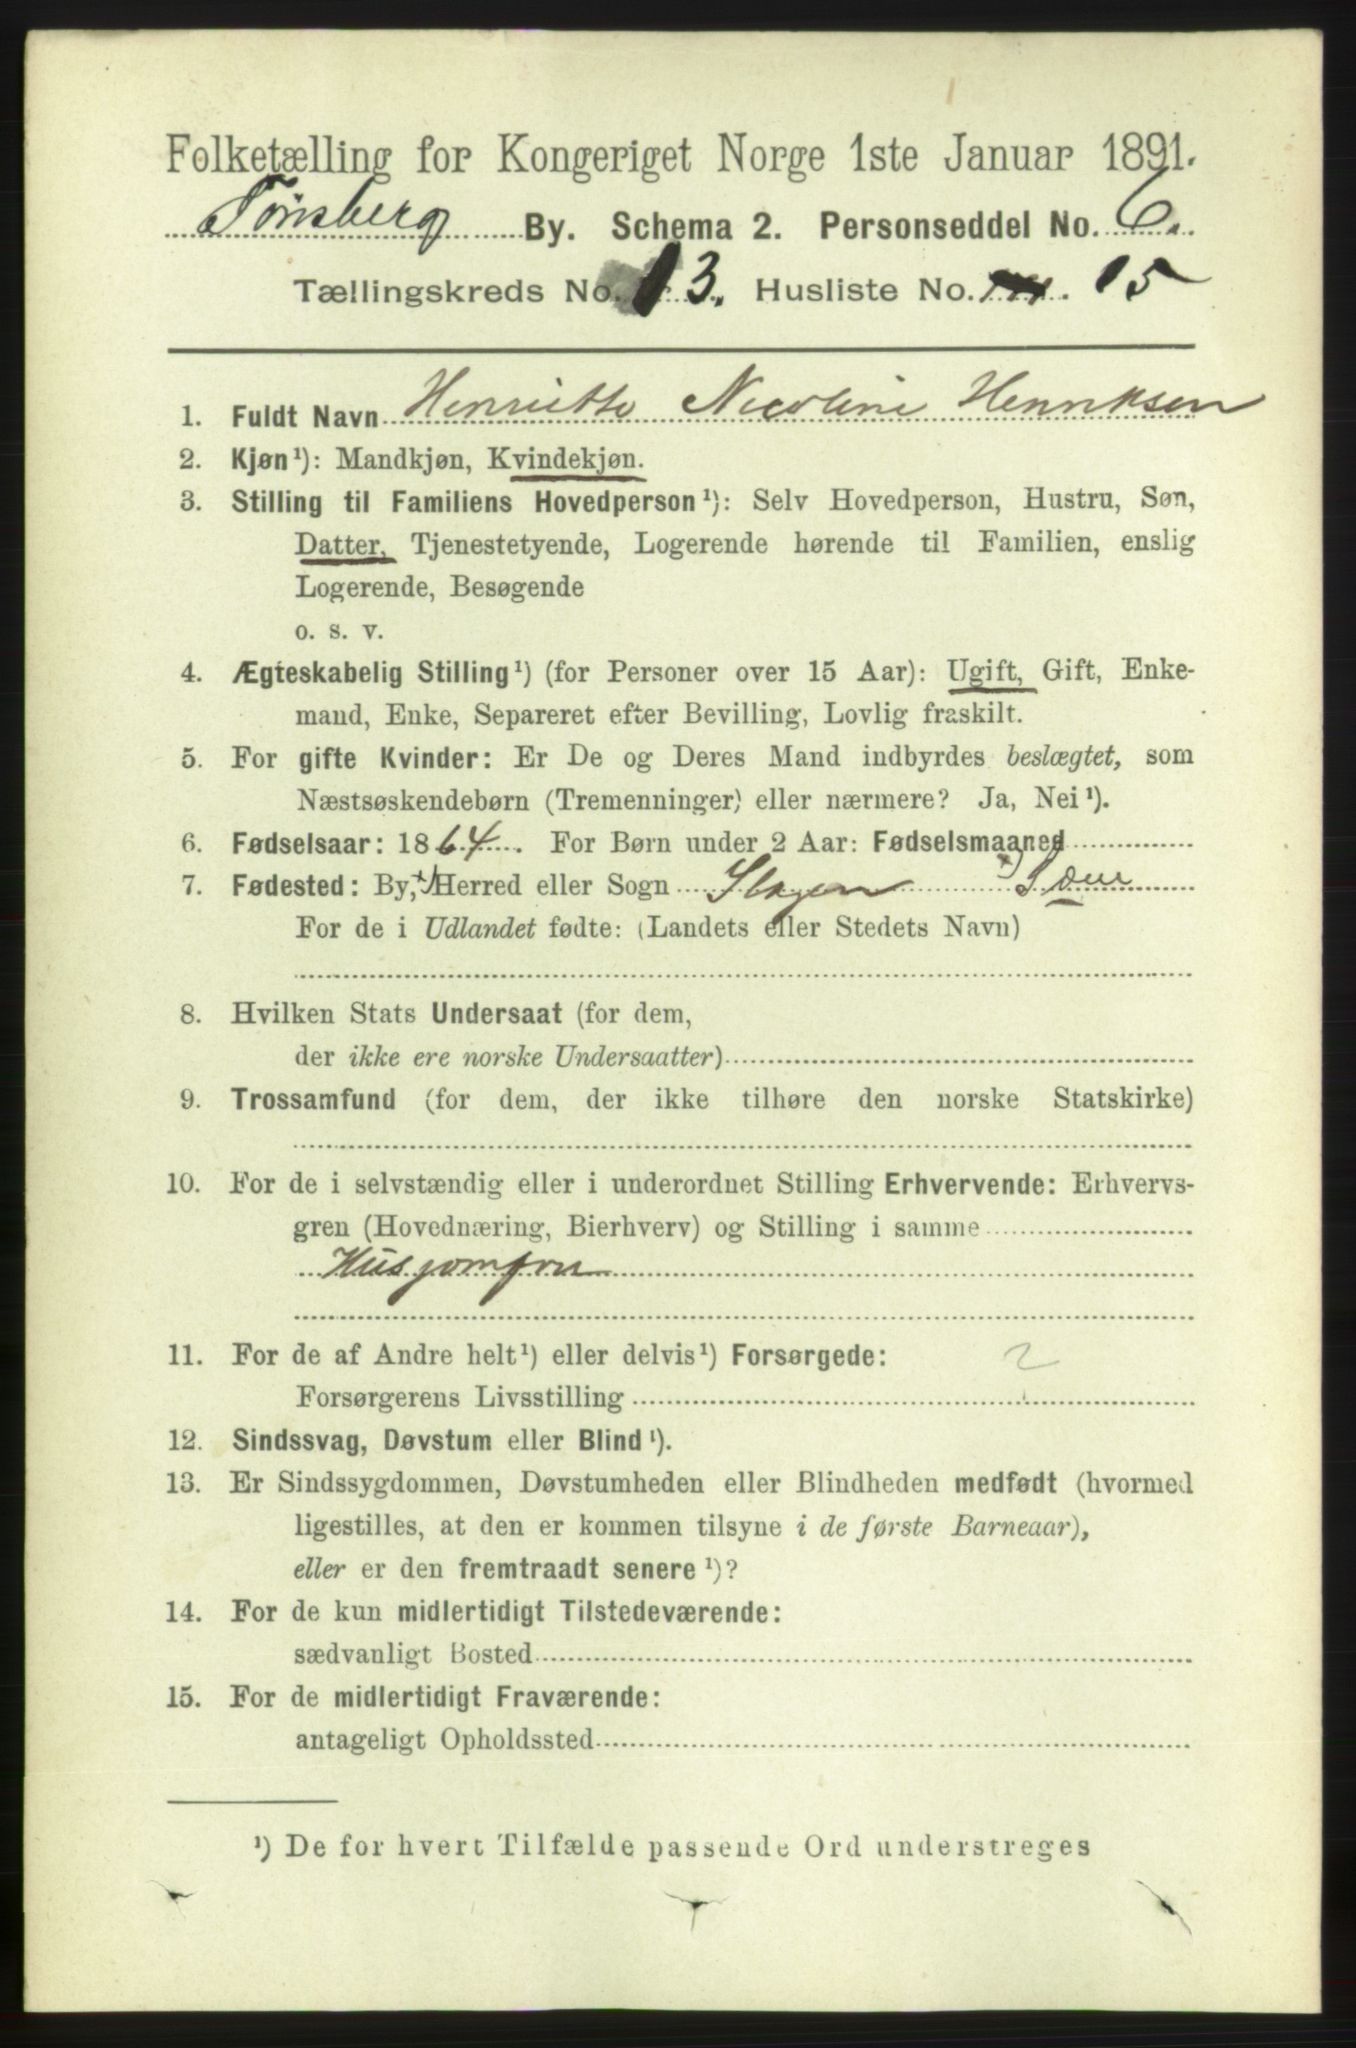 Folketælling for Kongeriget Norge 1ste Januar 1891.
Tønsberg By. Schema 2. Personseddel No. 6.
Tællingskreds No. 13. Husliste No. 15
1. Fuldt Navn Henriette Nicoline Henriksen
2. Kjøn¹): Mandkjøn, Kvindekjøn.
3. Stilling til Familiens Hovedperson¹): Selv Hovedperson, Hustru, Søn,
Datter, Tjenestetyende, Logerende hørende til Familien, enslig
Logerende, Besøgende
o. s. v.
4. Ægteskabelig Stilling¹) (for Personer over 15 Aar): Ugift, Gift, Enke-
mand, Enke, Separeret efter Bevilling, Lovlig fraskilt.
5. For gifte Kvinder: Er De og Deres Mand indbyrdes beslægtet, som
Næstsøskendebørn (Tremenninger) eller nærmere? Ja, Nei¹).
6. Fødselsaar: 1864. For Børn under 2 Aar: Fødselsmaaned
7. Fødested: By, Herred eller Sogn Slagen Sæm
For de i Udlandet fødte: (Landets eller Stedets Navn)
8. Hvilken Stats Undersaat (for dem,
der ikke ere norske Undersaatter)
9. Trossamfund (for dem, der ikke tilhøre den norske Statskirke)
10. For de i selvstændig eller i underordnet Stilling Erhvervende: Erhvervs-
gren (Hovednæring, Bierhverv) og Stilling i samme
Husjomfru
11. For de af Andre helt¹) eller delvis¹) Forsørgede: 2
Forsørgerens Livsstilling
12. Sindssvag, Døvstum eller Blind¹).
13. Er Sindssygdommen, Døvstumheden eller Blindheden medfødt (hvormed
ligestilles, at den er kommen tilsyne i de første Barneaar),
eller er den fremtraadt senere¹)?
14. For de kun midlertidigt Tilstedeværende:
sædvanligt Bosted
15. For de midlertidigt Fraværende:
antageligt Opholdssted
¹) De for hvert Tilfælde passende Ord understreges